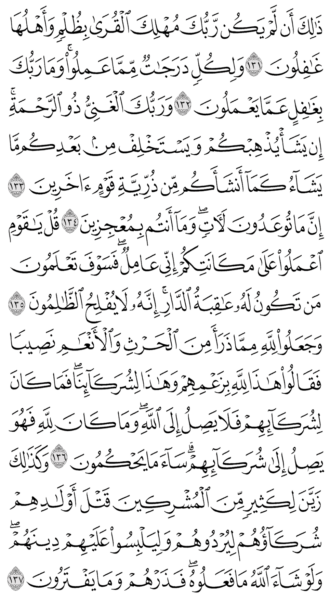 ذَٰلِكَ أَن لَّمْ يَكُن رَّبُّكَ مُهْلِكَ ٱلْقُرَىٰ بِظُلْمٍ وَأَهْلُهَا
غَٰفِلُونَ ١٣١ وَلِكُلٍّ دَرَجَٰتٌ مِّمَّا عَمِلُوا۟ ۚ وَمَا رَبُّكَ
بِغَٰفِلٍ عَمَّا يَعْمَلُونَ ١٣٢ وَرَبُّكَ ٱلْغَنِىُّ ذُو ٱلرَّحْمَةِ ۚ
إِن يَشَأْ يُذْهِبْكُمْ وَيَسْتَخْلِفْ مِنۢ بَعْدِكُم مَّا
يَشَآءُ كَمَآ أَنشَأَكُم مِّن ذُرِّيَّةِ قَوْمٍ ءَاخَرِينَ ١٣٣
إِنَّ مَا تُوعَدُونَ لَءَاتٍ ۖ وَمَآ أَنتُم بِمُعْجِزِينَ ١٣٤ قُلْ يَٰقَوْمِ
ٱعْمَلُوا۟ عَلَىٰ مَكَانَتِكُمْ إِنِّى عَامِلٌ ۖ فَسَوْفَ تَعْلَمُونَ
مَن تَكُونُ لَهُۥ عَٰقِبَةُ ٱلدَّارِ ۗ إِنَّهُۥ لَا يُفْلِحُ ٱلظَّٰلِمُونَ ١٣٥
وَجَعَلُوا۟ لِلَّهِ مِمَّا ذَرَأَ مِنَ ٱلْحَرْثِ وَٱلْأَنْعَٰمِ نَصِيبًا
فَقَالُوا۟ هَٰذَا لِلَّهِ بِزَعْمِهِمْ وَهَٰذَا لِشُرَكَآئِنَا ۖ فَمَا كَانَ
لِشُرَكَآئِهِمْ فَلَا يَصِلُ إِلَى ٱللَّهِ ۖ وَمَا كَانَ لِلَّهِ فَهُوَ
يَصِلُ إِلَىٰ شُرَكَآئِهِمْ ۗ سَآءَ مَا يَحْكُمُونَ ١٣٦ وَكَذَٰلِكَ
زَيَّنَ لِكَثِيرٍ مِّنَ ٱلْمُشْرِكِينَ قَتْلَ أَوْلَٰدِهِمْ
شُرَكَآؤُهُمْ لِيُرْدُوهُمْ وَلِيَلْبِسُوا۟ عَلَيْهِمْ دِينَهُمْ ۖ
وَلَوْ شَآءَ ٱللَّهُ مَا فَعَلُوهُ ۖ فَذَرْهُمْ وَمَا يَفْتَرُونَ ١٣٧